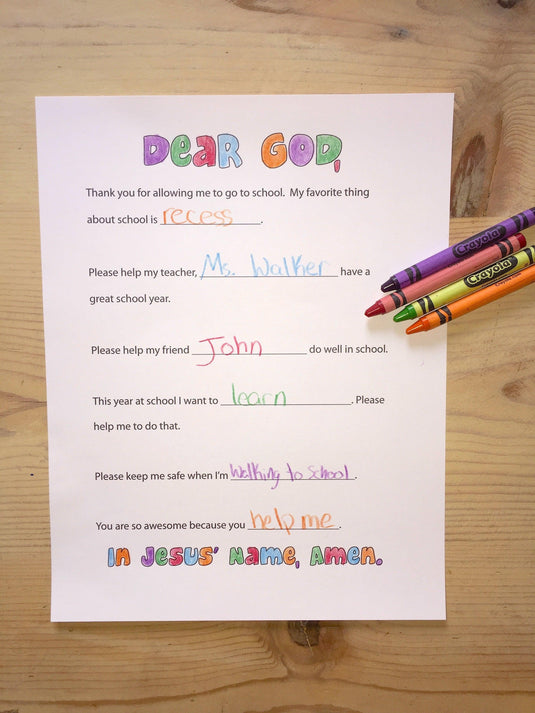 DEAR GOD,
Thank you for allowing me to go to school. My favorite thing
about school is recess.
Please help my teacher, Ms. Walker have a
great school year.
Please help my friend John do well in school.
This year at school I want to learn. Please
help me to do that.
Please keep me safe when I'm Walking to School.
You are so awesome because you help me.
In Jesus' Name, Amen.
Crayola
Crayola